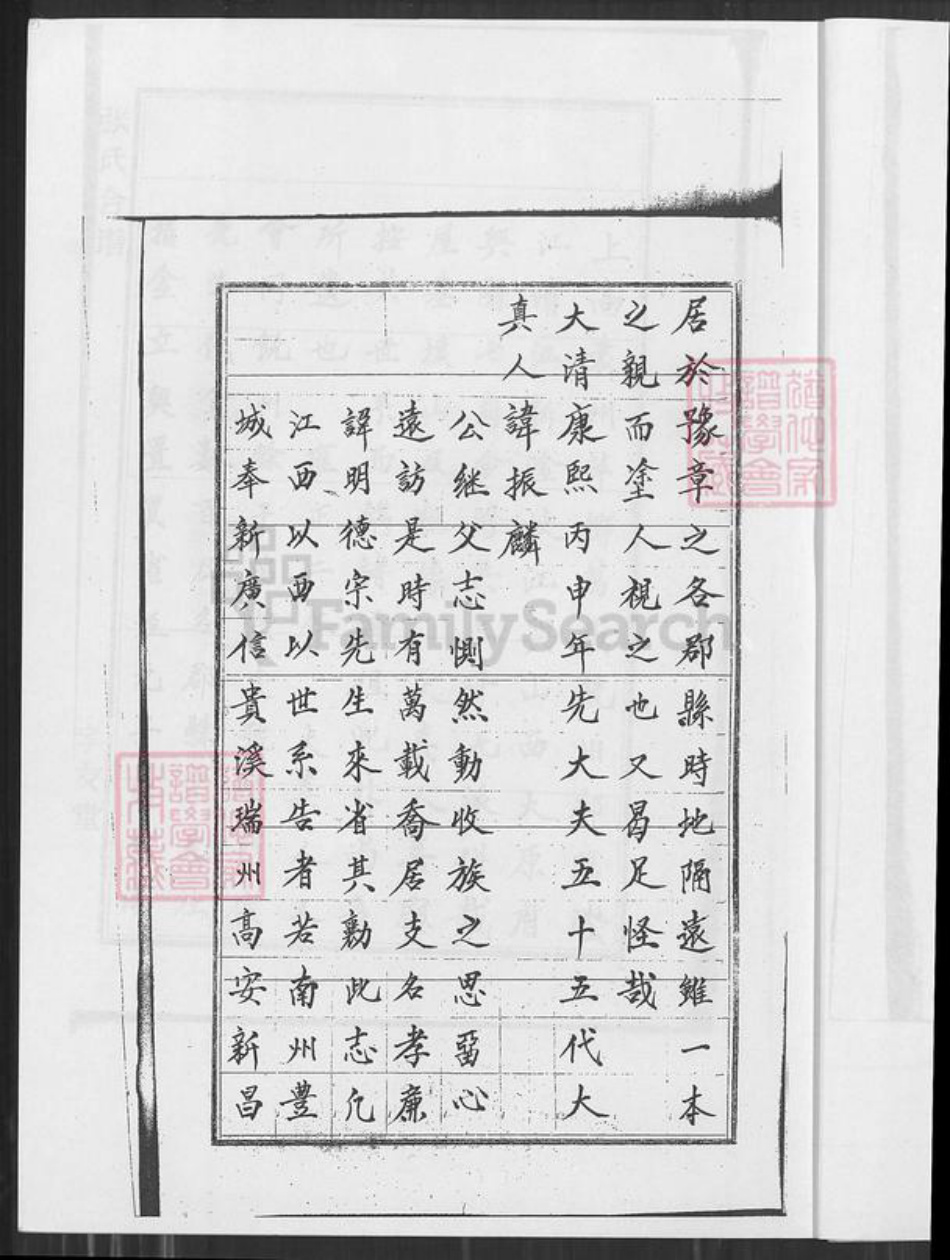 居於豫章之各郡縣時地隔遠雖一本
之親而塗人視之也又曷足怪哉
大清康熙丙申年先大夫五十五代大
真人諱振麟
公继父志惻然動收族之思畱心
遠訪是時有萬載喬居支名孝廉
諱明德宗先生來省其勷此志凢
江西以西以世系告者若南州豐
城奉新廣信貴溪瑞州高安新昌
FamilySearch
譜學會
譜學會